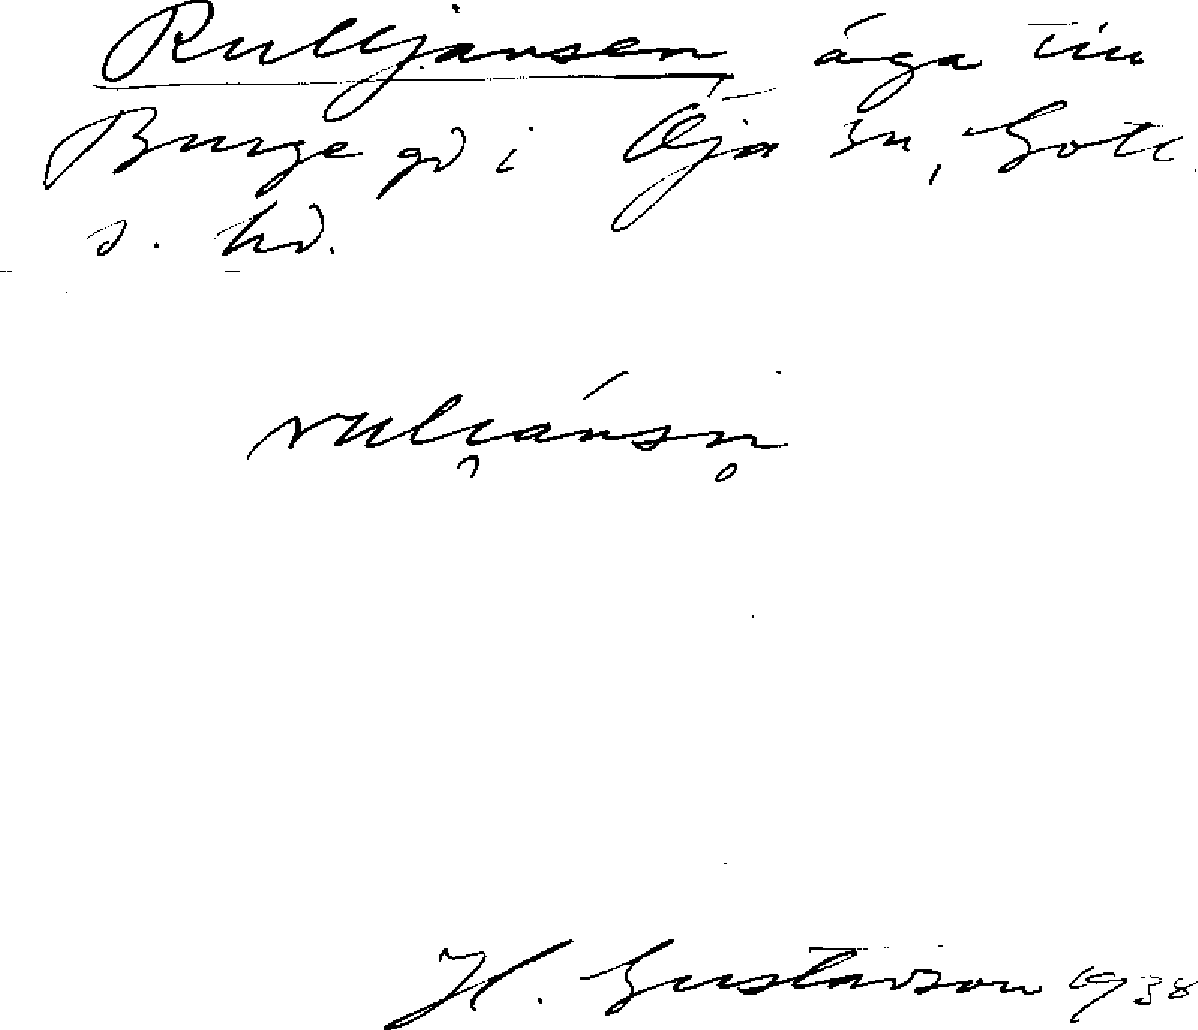 Rulljansen, åga till
Burge gd i Öja sn, Gotl.
s. hd.
ruli̯ánsn̥
H. Gustavson 1938